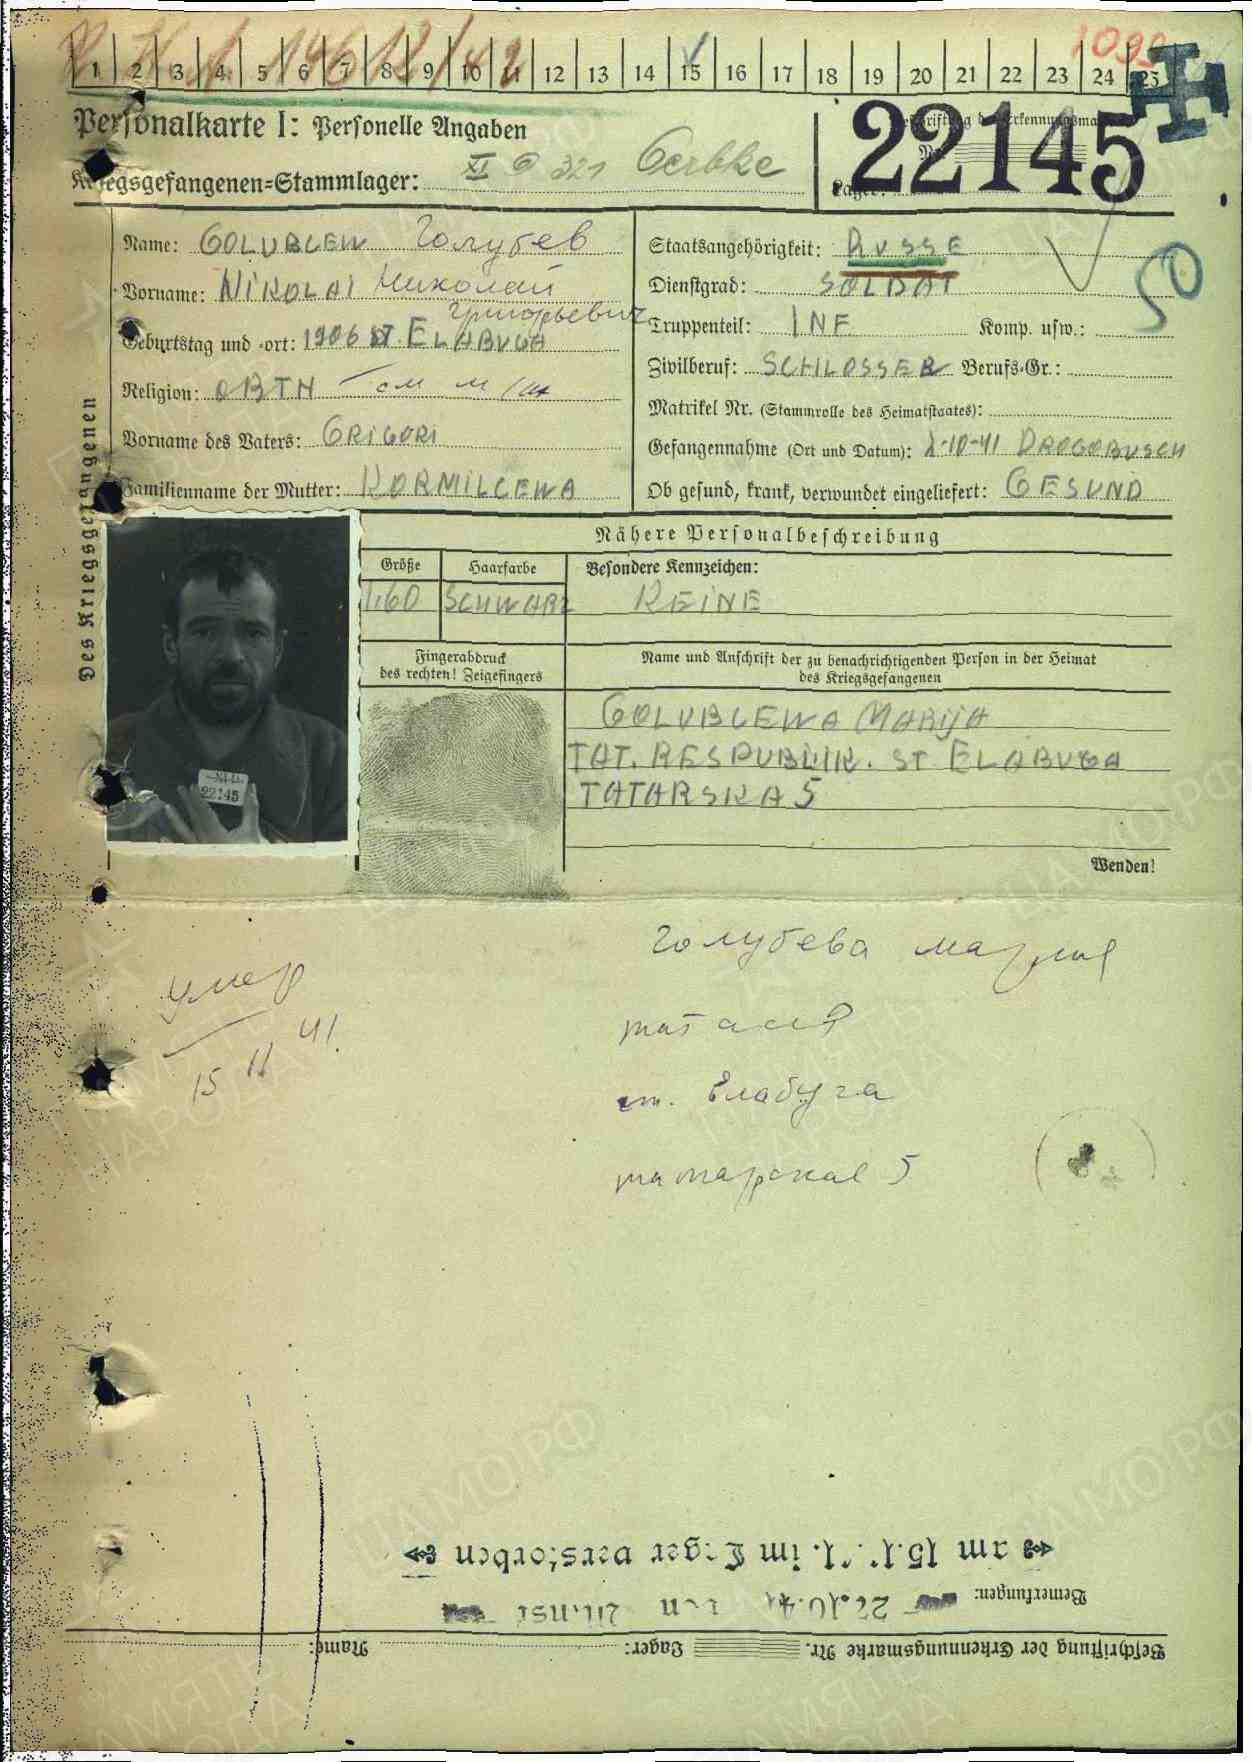 1 2 3 4 5 6 7 8 9 10 11 12 13 14 15 16 17 18 19 20 21 22 23 24 25
Personalkarte I: Personelle Angaben
Kriegsgefangenen=Stammlager: XI D 321 Oerbke
22145
50
Name: GOLUBLEW Голубев
Vorname: NIKOLAI Николай
Григорьевич
Geburtstag und -ort: 1906 ST. ELABUGA
Religion: ORTH
Vorname des Vaters: GRIGORI
Familienname der Mutter: KORMILCEWA
Staatsangehörigkeit: RUSSE
Dienstgrad: SOLDAT
Truppenteil: INF Komp. usw.:
Zivilberuf: SCHLOSSER Berufs-Gr.:
Matrikel Nr. (Stammrolle des Heimatstaates):
Gefangennahme (Ort und Datum): 2-10-41 DROGOBUSCH
Ob gesund, krank, verwundet eingeliefert: GESUND
Des Kriegsgefangenen
Nähere Personalbeschreibung
Größe Haarfarbe Besondere Kennzeichen:
1.60 SCHWARZ KEINE
Fingerabdruck
des rechten! Zeigefingers
Name und Anschrift der zu benachrichtigenden Person in der Heimat
des Kriegsgefangenen
GOLUBLEWA MARIJA
TAT. RESPUBLIK. ST ELABUGA
TATARSKA 5
22145
Wenden!
Голубева Мария
умер
15 11 41.
ст. Елабуга
татарская 5
am 15.11.41. im Lager verstorben
Bemerkungen: 22.10.41
Beschriftung der Erkennungsmarke Nr. Lager: Name: